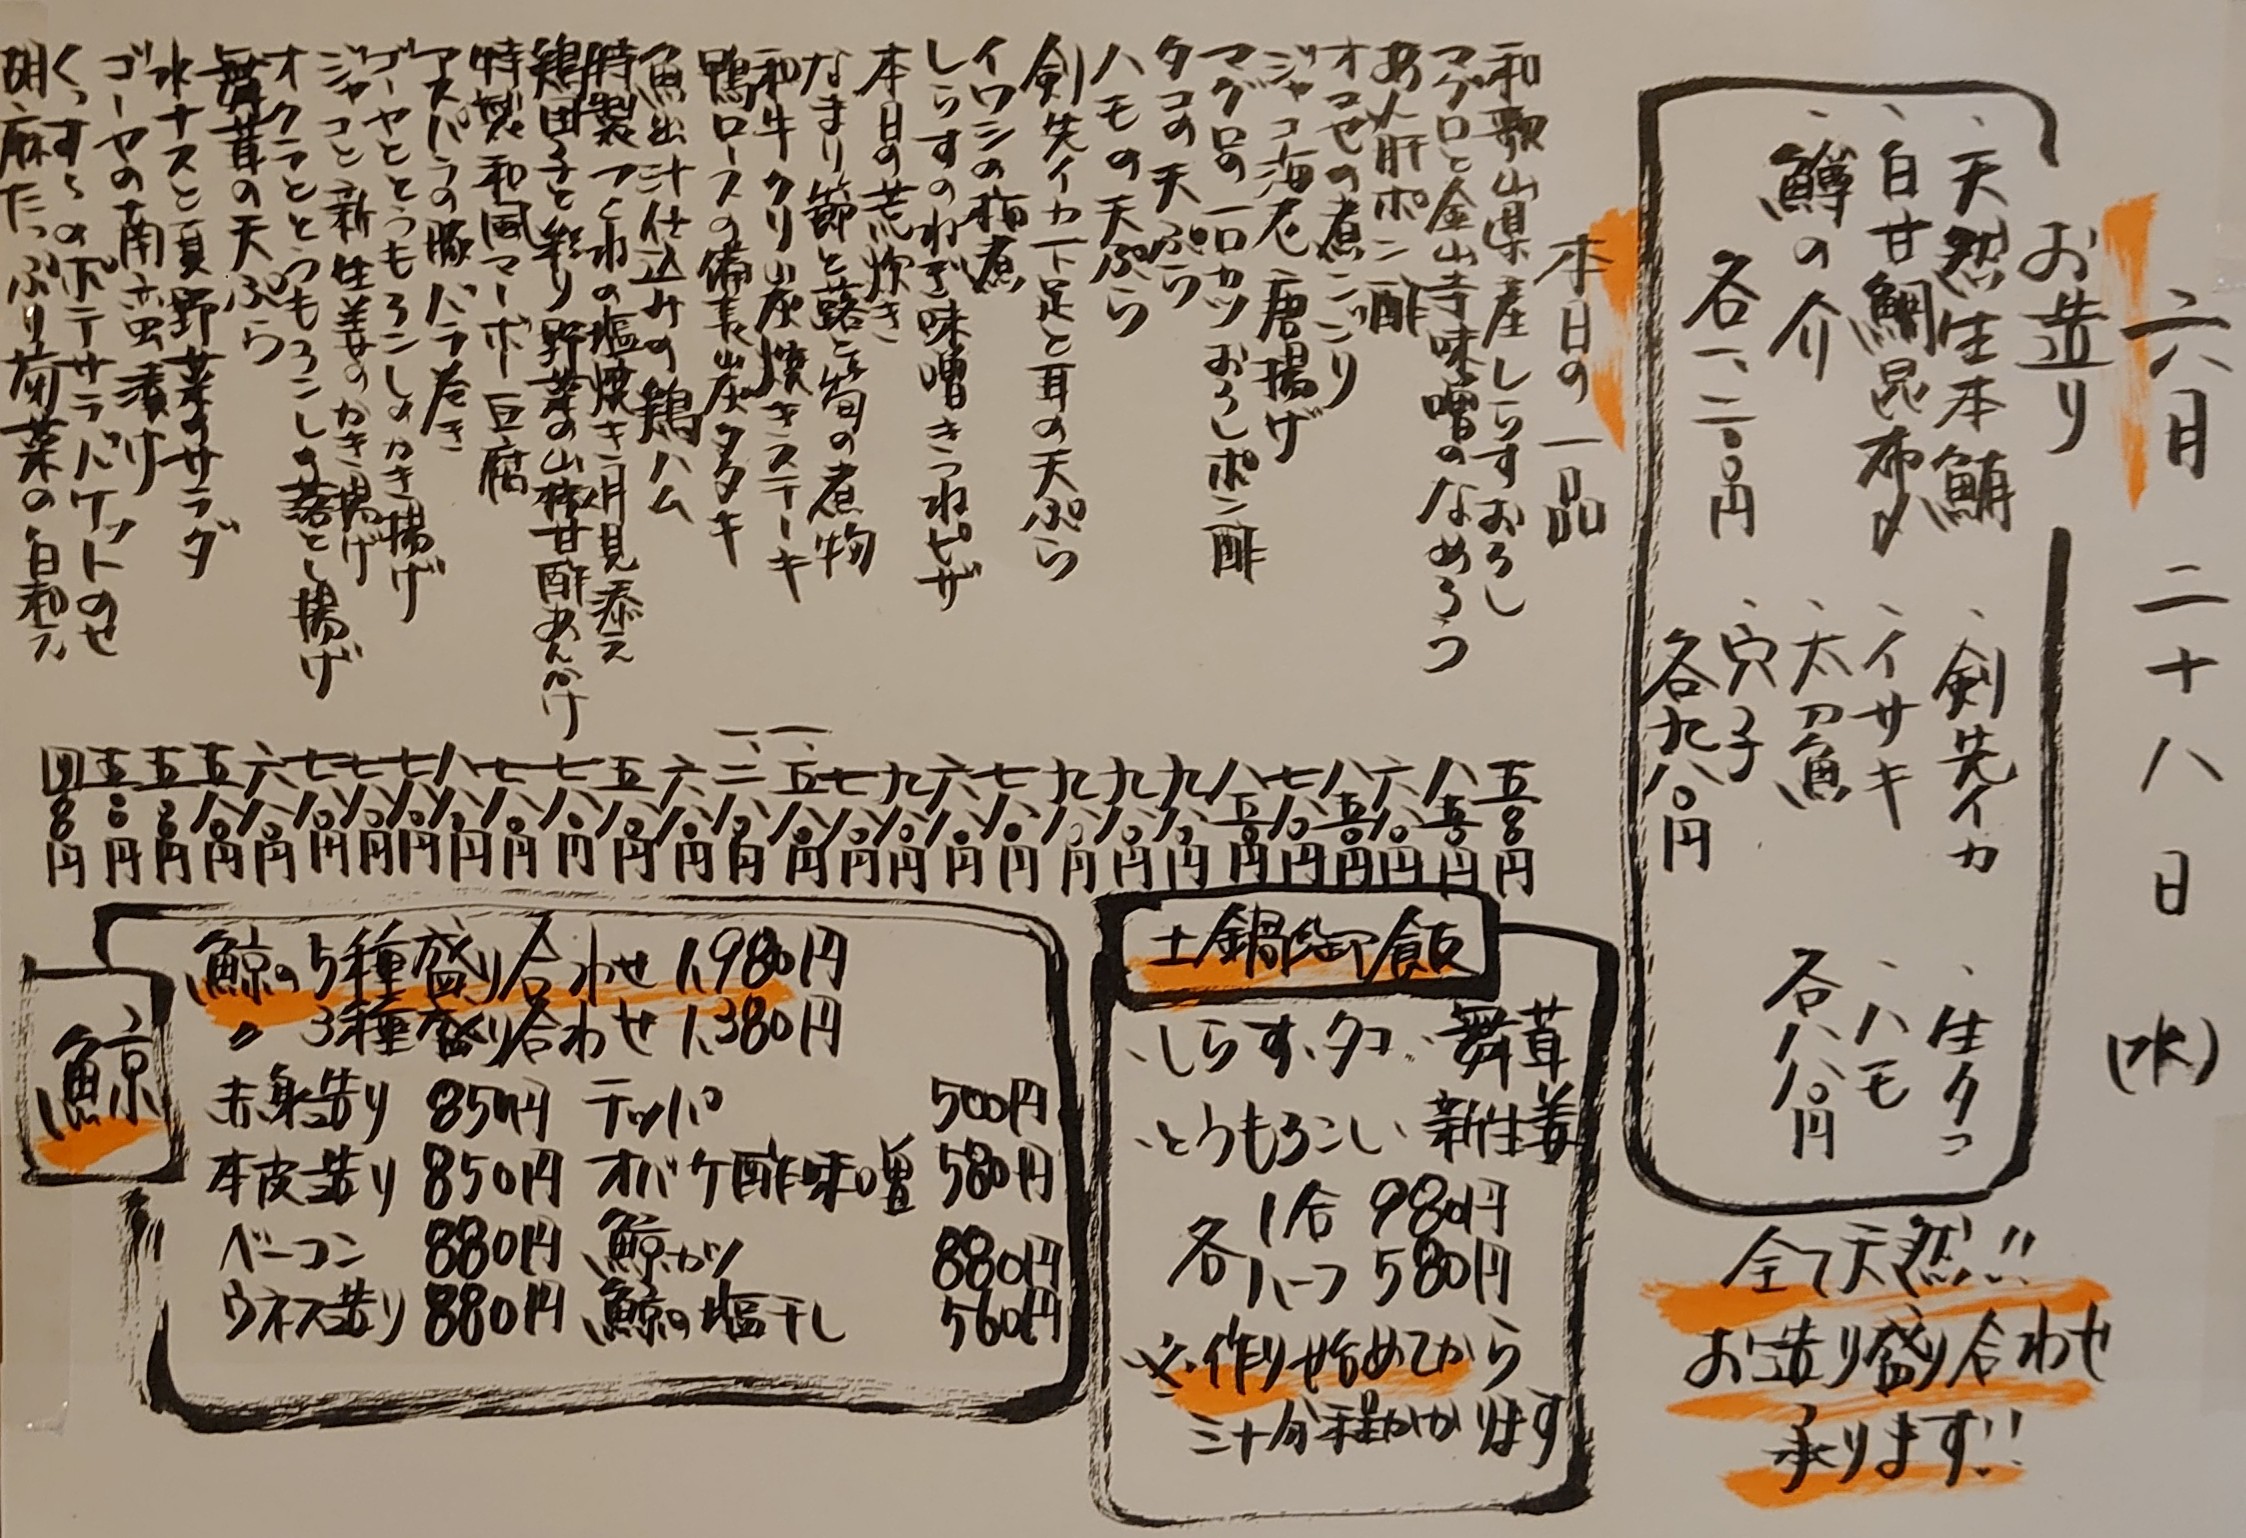 六月二十八日(水)
お造り
、天然生本鮪
、白甘鯛昆布〆
、鱒の介
各一、二〇〇円
、剣先イカ
、イサキ
、太刀魚
、穴子
各九八〇円
、生タコ
、ハモ
各八八〇円
全て天然!!
お造り盛り合わせ
承ります!!
本日の一品
和歌山県産しらすおろし 五〇〇円
マグロと金山寺味噌のなめろう 八五〇円
あん肝ポン酢 六八〇円
オコゼの煮こごり 八五〇円
ジャコ海老唐揚げ 七八〇円
マグロの一口カツおろしポン酢 八五〇円
タコの天ぷら 九八〇円
ハモの天ぷら 九八〇円
剣先イカ下足と耳の天ぷら 九八〇円
イワシの梅煮 七八〇円
しらすのねぎ味噌きつねピザ 六八〇円
本日の荒炊き 九八〇円
なまり節と蕗と筍の煮物 七八〇円
和牛クリ炭焼きステーキ 一、五八〇円
鴨ロースの備長炭タタキ 一、二八〇円
魚出汁仕込みの鶏ハム 六八〇円
特製つくねの塩焼き月見添え 五八〇円
鶏団子と彩り野菜の山椒甘酢あんかけ 七八〇円
特製和風マーボー豆腐 七八〇円
アスパラの豚バラ巻き 八八〇円
ゴーヤととうもろこしのかき揚げ 七八〇円
ジャコと新生姜のかき揚げ 七八〇円
オクラととうもろこしの落とし揚げ 七八〇円
舞茸の天ぷら 六八〇円
水ナスと夏野菜のサラダ 五八〇円
ゴーヤの南蛮漬け 五〇〇円
くつすぅのポテサラバケットのせ 五〇〇円
胡麻たっぷり菊菜の白和え 四〇〇円
土鍋御飯
、しらす、タコ、舞茸
、とうもろこし、新生姜
各 1合 980円
ハーフ 580円
※作り始めてから
三十分程かかります
鯨
鯨の5種盛り合わせ 1,980円
〃 3種盛り合わせ 1,380円
赤身造り 850円 テッパ 500円
本皮造り 850円 オバケ酢味噌 580円
ベーコン 880円 鯨カツ 880円
ウネス造り 880円 鯨の塩干し 560円